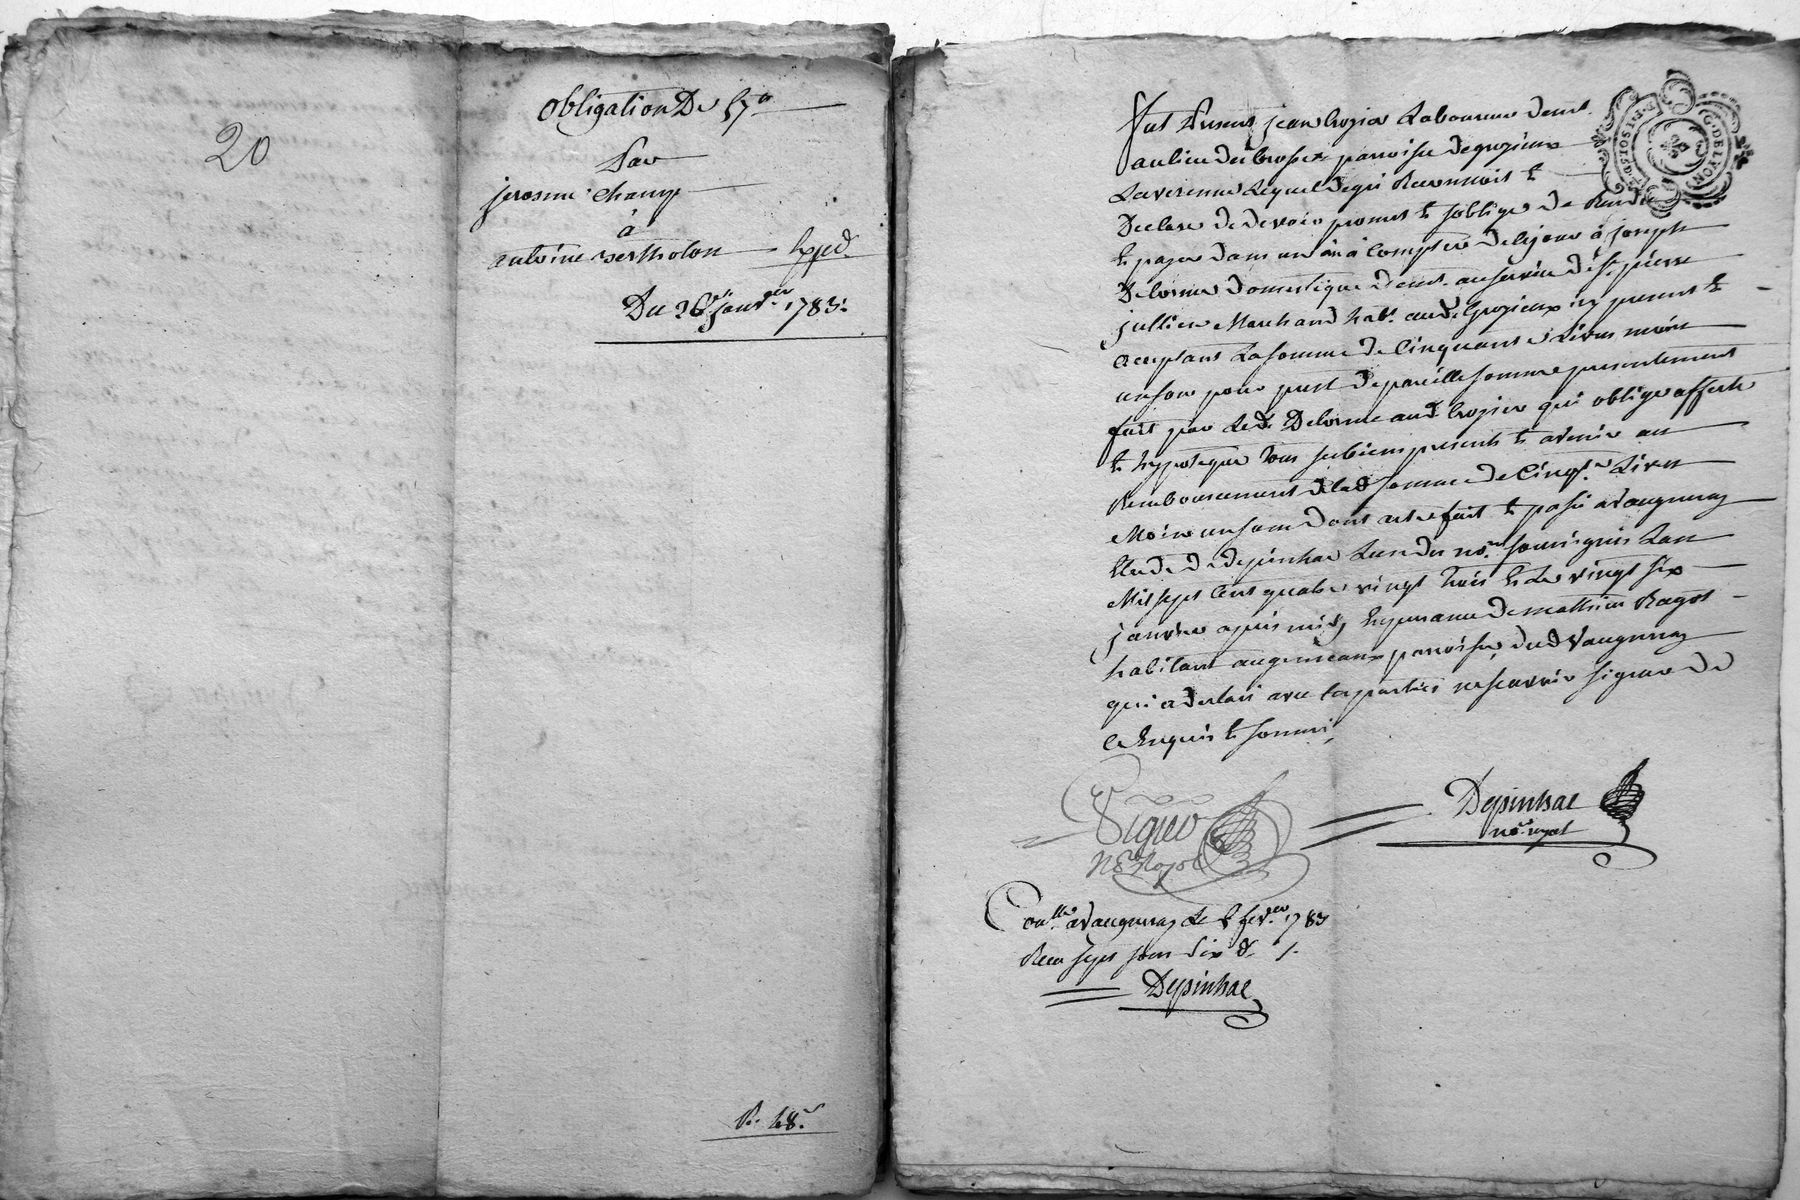 20
obligation De 57#
Par
jerosme Chamy
à
antoine Bertholon Exped.
Du 26e janvier 1783.
R. 48.
fut present jean Crozier Laboureur demt.
au lieu des parroisse de grezieux
Lavarenne Lequel de gré Reconnoit et
Declare de devoir promet et s'oblige de Rendre
et payer dans un an à Compter de ce jour à joseph
Delorme domestique demt. au service de sr. pierre
jullien Marchand habt. aud. Grezieux icy present et
acceptant La somme de Cinquante Livres moins
un sou pour prest de pareille somme presentement
fait par Led. Delorme aud. Crozier qui oblige affecte
et hypoteque tous ses biens presents et avenir au
Remboursement de lad. somme de Cinqte. Livres
Moins un sou dont acte fait et passé a Vaugneray
Etude de depinhac L'un des nores. soussignés L'an
Mil sept Cent quatre vingt trois et Le vingt six
janvier après midy En presance de mathieu Ragot
habitant au parroisse dud. Vaugneray
qui a declaré avec Les parties ne sçavoir signer de
ce Enquis et sommé
G. DE LYON
Depinhac
nore. royal
Conllé. a Vaugneray Le fevrer. 1783
Recu sept sous six d.
Depinhac